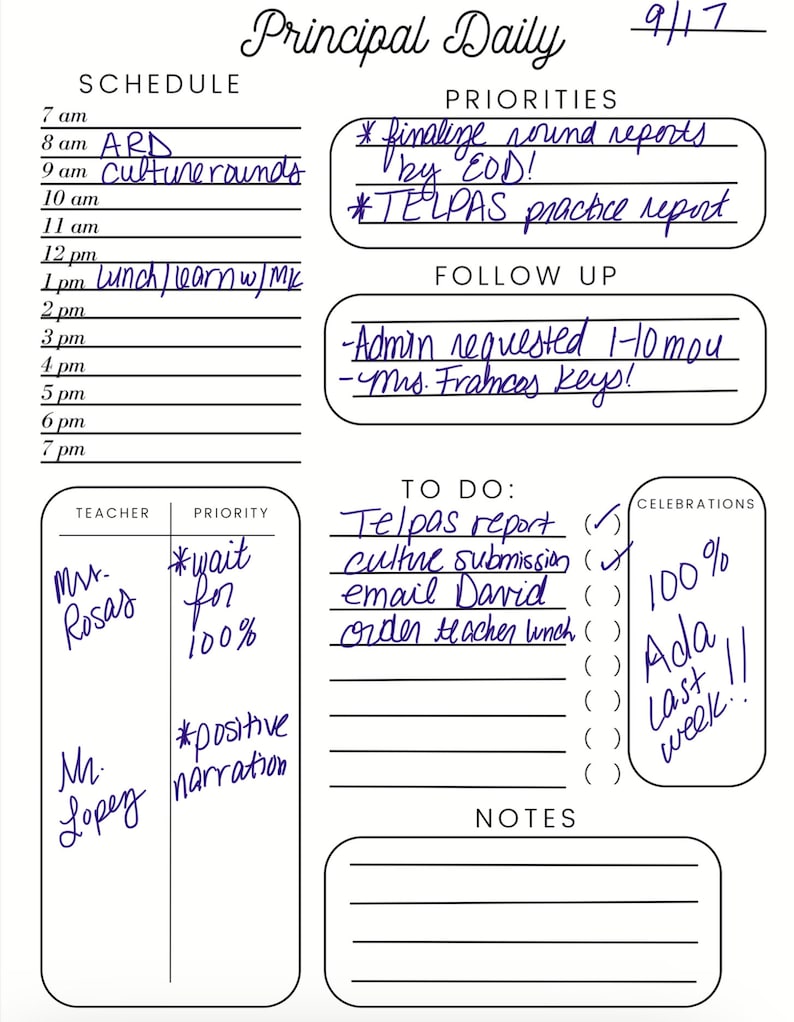 Principal Daily
9/17
SCHEDULE
7 am
8 am ARD
9 am culture rounds
10 am
11 am
12 pm
1 pm Lunch/learn w/ MK
2 pm
3 pm
4 pm
5 pm
6 pm
7 pm
PRIORITIES
* finalize round reports
by EOD!
* TELPAS practice report
FOLLOW UP
- Admin requested 1-10 mou
- Mrs. Frances Keys!
TEACHER PRIORITY
Mrs. *wait
Rosas for
100%
Mr. *positive
Lopez narration
TO DO:
Telpas report (✓)
culture submission (✓)
email David ( )
order teacher lunch ( )
( )
( )
( )
( )
CELEBRATIONS
100%
Ada
last
week!!
NOTES